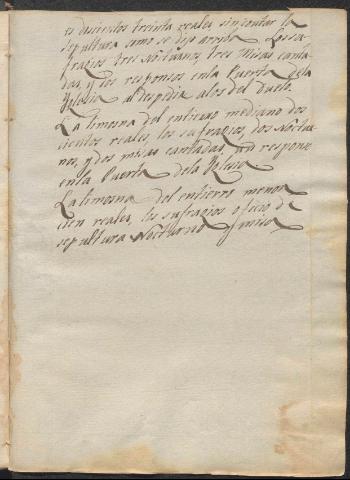 es dusientos treinta reales sin contar la
sepultura como se dijo arriba. Los su
fragios tres Nocturnos, tres Misas canta
das, y dos responsos en la Puerta dela
Yglesia al despedir alos del Duelo.
La limosna del entierro mediano dos
cientos reales, los sufragios, dos Noctur
nos, y dos misas cantadas, responso
enla Puerta dela Yglesia.
La limosna del entierro menor
cien reales, los sufragios oficio de
sepultura Nocturno y misa